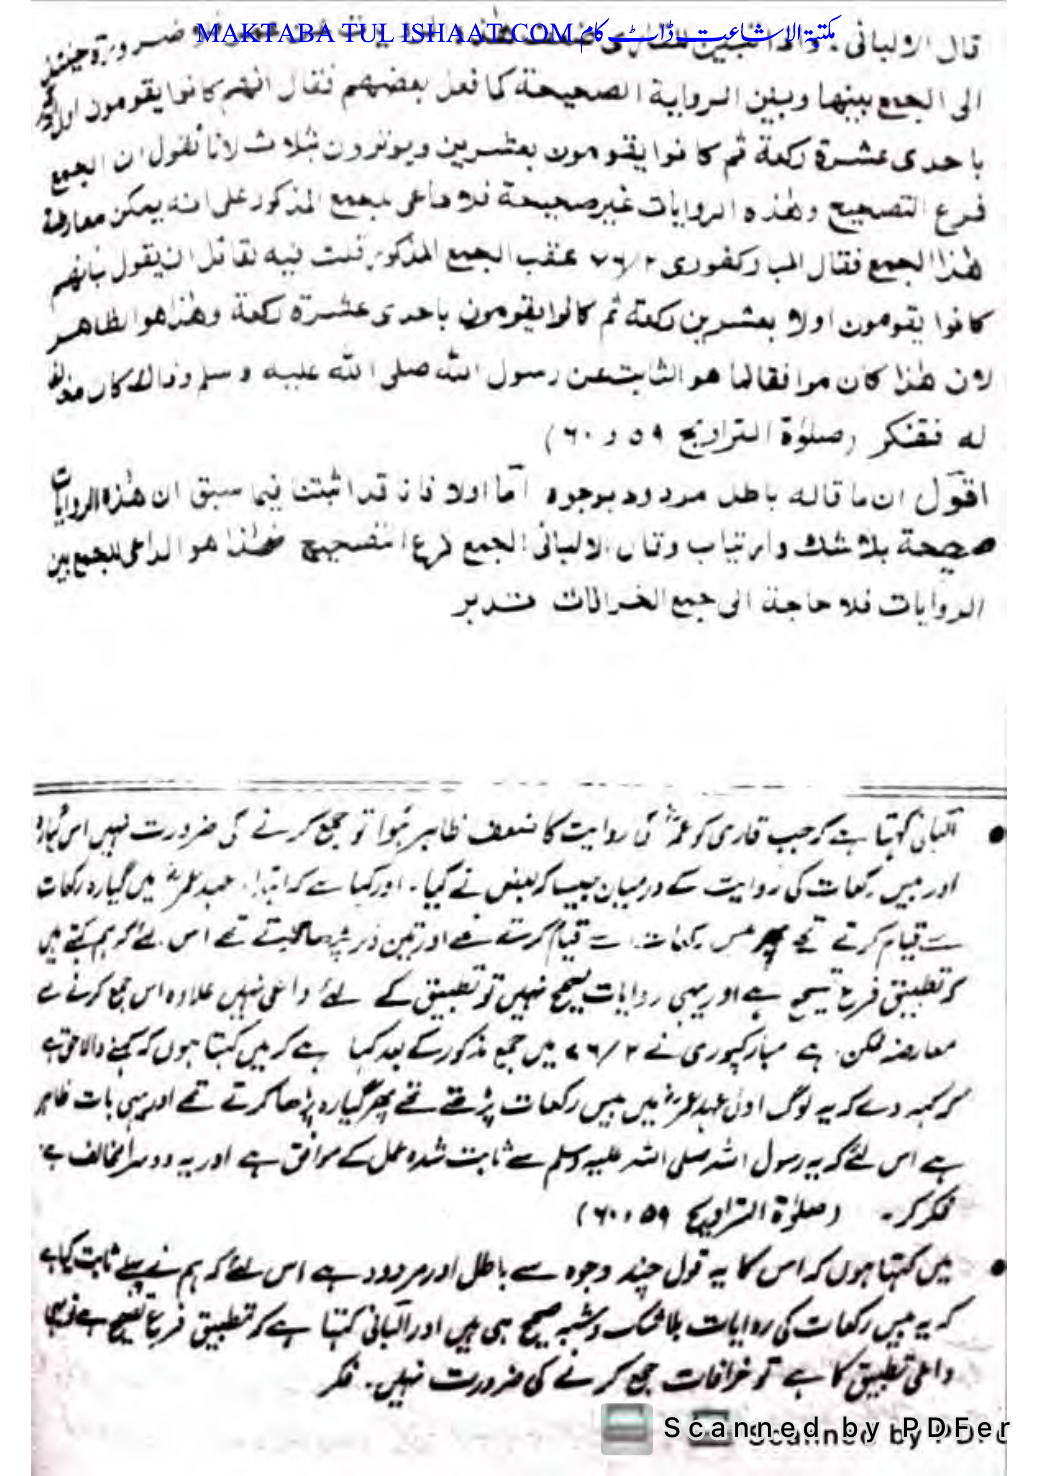 MAKTABA TUL ISHAAT.COM مکتبۃ الاشاعت ڈاٹ کام
قال الالبانی
الی الجمع بینها وبین الروایة الصحیحة کما فعل بعضهم فقال انهم کانوا یقومون اولا
باحدی عشرة رکعة ثم کانوا یقومون بعشرین ویوترون بثلاث لانا نقول ان الجمع
فرع التصحیح وهذه الروایات غیر صحیحة فلا داعی للجمع المذکور علی انه یمکن معارضة
هذا الجمع فقال المبارکفوری ۷۶/۲ عقب الجمع المذکور قلت فیه لقائل ان یقول بانهم
کانوا یقومون اولا بعشرین رکعة ثم کانوا یقومون باحدی عشرة رکعة وهذا هو الظاهر
لان هذا کان موافقا لما هو الثابت عن رسول الله صلی الله علیه وسلم وذالک کان مخالفا
له فتفکر (صلوٰة التراویح ۵۹ و ۶۰)
اقول ان ما قاله باطل مردود بوجوه اما اولا فانا قد اثبتنا فیما سبق ان هذه الروایات
صحیحة بلا شک وارتیاب وقال الالبانی الجمع فرع التصحیح فهذا هو الداعی للجمع بین
الروایات فلا حاجة الی جمع الخرافات فتدبر
البانی کہتا ہے کہ جب قاری کو عمرؓ کی روایت کا ضعف ظاہر ہوا تو جمع کرنے کی ضرورت نہیں اس گیارہ
اور بیس رکعات کی روایت کے درمیان جیسا کہ بعض نے کیا۔ اور کہا ہے کہ ابتداءً عہد عمرؓ میں گیارہ رکعات
سے قیام کرتے تھے پھر بیس رکعات سے قیام کرتے تھے اور تین وتر پڑھا کرتے تھے اس لئے کہ ہم کہتے ہیں
کہ تطبیق فرع تصحیح ہے اور یہی روایات صحیح نہیں تو تطبیق کے لئے داعی نہیں علاوہ اس جمع کرنے سے
معارضہ ممکن ہے مبارکپوری نے ۷۶/۲ میں جمع مذکور کے بعد کہا ہے کہ میں کہتا ہوں کہ کہنے والا حق ہے
کہ کہہ دے کہ یہ لوگ اول عہد عمرؓ میں بیس رکعات پڑھتے تھے پھر گیارہ پڑھا کرتے تھے اور یہی بات ظاہر
ہے اس لئے کہ یہ رسول اللہ صلی اللہ علیہ وسلم سے ثابت شدہ عمل کے موافق ہے اور یہ دوسرا مخالف ہے
فکر کر۔ (صلوٰة التراویح ۵۹ و ۶۰)
میں کہتا ہوں کہ اس کا یہ قول چند وجوہ سے باطل اور مردود ہے اس لئے کہ ہم نے پہلے ثابت کیا ہے
کہ یہ بیس رکعات کی روایات بلا شک و شبہ صحیح ہی ہیں اور البانی کہتا ہے کہ تطبیق فرع تصحیح ہے تو یہی
داعی تطبیق کا ہے تو خرافات جمع کرنے کی ضرورت نہیں۔ فکر
Scanned by PDFer
Scanned by